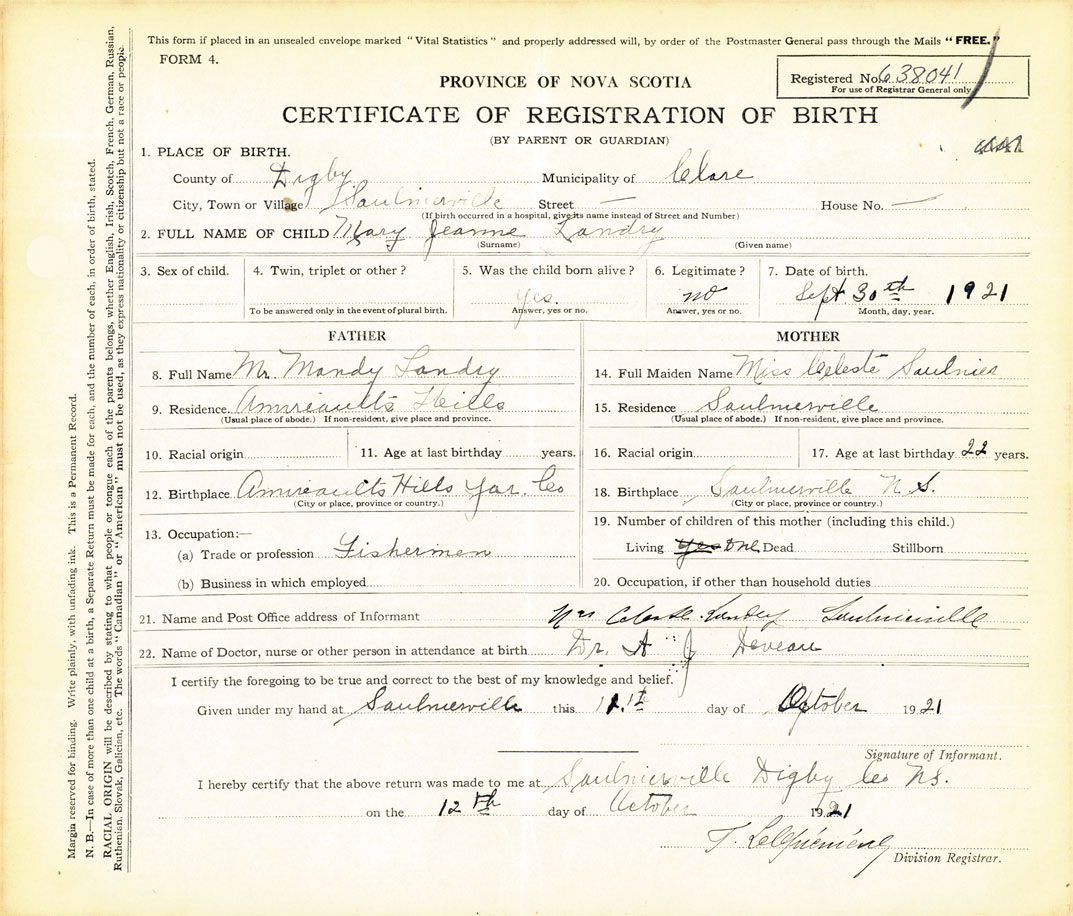 This form if placed in an unsealed envelope marked "Vital Statistics" and properly addressed will, by order of the Postmaster General pass through the Mails "FREE."
FORM 4.
PROVINCE OF NOVA SCOTIA
Registered No. 638041
For use of Registrar General only
CERTIFICATE OF REGISTRATION OF BIRTH
(BY PARENT OR GUARDIAN)
1. PLACE OF BIRTH.
County of Digby Municipality of Clare
City, Town or Village Saulnierville Street — House No. —
(If birth occurred in a hospital, give its name instead of Street and Number)
2. FULL NAME OF CHILD Mary Jeanne Landry
(Surname) (Given name)
3. Sex of child. 4. Twin, triplet or other? 5. Was the child born alive? 6. Legitimate? 7. Date of birth.
yes. no Sept 30th 1921
To be answered only in the event of plural birth. Answer, yes or no. Answer, yes or no. Month, day, year.
FATHER
8. Full Name Mr. Mandy Landry
9. Residence. Amireaults Hills
(Usual place of abode.) If non-resident, give place and province.
10. Racial origin 11. Age at last birthday years.
12. Birthplace Amireaults Hills Yar. Co
(City or place, province or country.)
13. Occupation:—
(a) Trade or profession Fishermen
(b) Business in which employed
MOTHER
14. Full Maiden Name Miss Celeste Saulnier
15. Residence Saulnierville
(Usual place of abode.) If non-resident, give place and province.
16. Racial origin 17. Age at last birthday 22 years.
18. Birthplace Saulnierville N S.
(City or place, province or country.)
19. Number of children of this mother (including this child.)
Living yes one Dead Stillborn
20. Occupation, if other than household duties
21. Name and Post Office address of Informant Mrs Celeste Landry Saulnierville
22. Name of Doctor, nurse or other person in attendance at birth Dr. A J Deveau
I certify the foregoing to be true and correct to the best of my knowledge and belief.
Given under my hand at Saulnierville this day of October 1921
Signature of Informant.
I hereby certify that the above return was made to me at Saulnierville Digby Co NS.
on the 12th day of October 1921
Division Registrar.
Margin reserved for binding. Write plainly, with unfading ink. This is a Permanent Record.
N. B.—In case of more than one child at a birth, a Separate Return must be made for each, and the number of each, in order of birth, stated.
RACIAL ORIGIN will be described by stating to what people or tongue each of the parents belongs, whether English, Irish, Scotch, French, German, Russian,
Ruthenian, Slovak, Galician, etc. The words "Canadian" or "American" must not be used, as they express nationality or citizenship but not a race or people